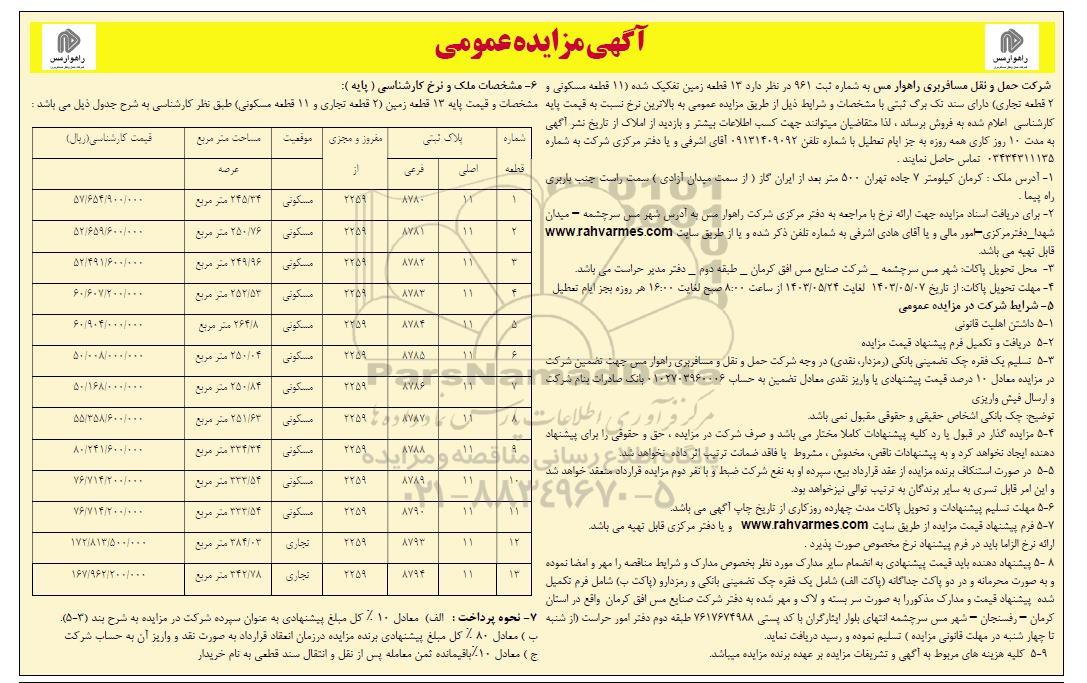 آگهی مزایده عمومی
راهوار مس
راهوار مس
شرکت حمل و نقل مسافربری راهوار مس به شماره ثبت ۹۶۱ در نظر دارد ۱۳ قطعه زمین تفکیک شده (۱۱ قطعه مسکونی و
۲ قطعه تجاری) دارای سند تک برگ ثبتی با مشخصات و شرایط ذیل از طریق مزایده عمومی به بالاترین نرخ نسبت به قیمت پایه
کارشناسی اعلام شده به فروش برساند ، لذا متقاضیان میتوانند جهت کسب اطلاعات بیشتر و بازدید از املاک از تاریخ نشر آگهی
به مدت ۱۰ روز کاری همه روزه به جز ایام تعطیل با شماره تلفن ۰۹۱۳۱۴۰۹۰۹۲ آقای اشرفی و یا دفتر مرکزی شرکت به شماره
۰۳۴۳۴۳۱۱۱۳۵ تماس حاصل نمایند .
۱- آدرس ملک : کرمان کیلومتر ۷ جاده تهران ۵۰۰ متر بعد از ایران گاز ( از سمت میدان آزادی ) سمت راست جنب باربری
راه پیما .
۲- برای دریافت اسناد مزایده جهت ارائه نرخ با مراجعه به دفتر مرکزی شرکت راهوار مس به آدرس شهر مس سرچشمه – میدان
شهدا_دفترمرکزی–امور مالی و یا آقای هادی اشرفی به شماره تلفن ذکر شده و یا از طریق سایت www.rahvarmes.com
قابل تهیه می باشد.
۳- محل تحویل پاکات: شهر مس سرچشمه _ شرکت صنایع مس افق کرمان _ طبقه دوم _ دفتر مدیر حراست می باشد.
۴- مهلت تحویل پاکات: از تاریخ ۱۴۰۳/۰۵/۰۷ لغایت ۱۴۰۳/۰۵/۲۴ از ساعت ۸:۰۰ صبح لغایت ۱۶:۰۰ هر روزه بجز ایام تعطیل
۵- شرایط شرکت در مزایده عمومی
۵-۱ داشتن اهلیت قانونی
۵-۲ دریافت و تکمیل فرم پیشنهاد قیمت مزایده
۵-۳ تسلیم یک فقره چک تضمینی بانکی (رمزدار، نقدی) در وجه شرکت حمل و نقل و مسافربری راهوار مس جهت تضمین شرکت
در مزایده معادل ۱۰ درصد قیمت پیشنهادی یا واریز نقدی معادل تضمین به حساب ۰۱۰۲۷۰۳۹۶۰۰۰۶ بانک صادرات بنام شرکت
و ارسال فیش واریزی
توضیح: چک بانکی اشخاص حقیقی و حقوقی مقبول نمی باشد.
۵-۴ مزایده گذار در قبول یا رد کلیه پیشنهادات کاملا مختار می باشد و صرف شرکت در مزایده ، حق و حقوقی را برای پیشنهاد
دهنده ایجاد نخواهد کرد و به پیشنهادات ناقص، مخدوش ، مشروط یا فاقد ضمانت ترتیب اثر داده نخواهد شد.
۵-۵ در صورت استنکاف برنده مزایده از عقد قرارداد بیع، سپرده او به نفع شرکت ضبط و با نفر دوم مزایده قرارداد منعقد خواهد شد
و این امر قابل تسری به سایر برندگان به ترتیب توالی نیزخواهد بود.
۵-۶ مهلت تسلیم پیشنهادات و تحویل پاکات مدت چهارده روزکاری از تاریخ چاپ آگهی می باشد.
۵-۷ فرم پیشنهاد قیمت مزایده از طریق سایت www.rahvarmes.com و یا دفتر مرکزی قابل تهیه می باشد.
ارائه نرخ الزاما باید در فرم پیشنهاد نرخ مخصوص صورت پذیرد .
۵-۸ پیشنهاد دهنده باید قیمت پیشنهادی به انضمام سایر مدارک مورد نظر بخصوص مدارک و شرایط مناقصه را مهر و امضا نموده
و به صورت محرمانه و در دو پاکت جداگانه (پاکت الف) شامل یک فقره چک تضمینی بانکی و رمزدارو (پاکت ب) شامل فرم تکمیل
شده پیشنهاد قیمت و مدارک مذکوررا به صورت سر بسته و لاک و مهر شده به دفتر شرکت صنایع مس افق کرمان واقع در استان
کرمان – رفسنجان – شهر مس سرچشمه انتهای بلوار ایثارگران با کد پستی ۷۶۱۷۶۷۴۹۸۸ طبقه دوم دفتر امور حراست (از شنبه
تا چهار شنبه در مهلت قانونی مزایده ) تسلیم نموده و رسید دریافت نماید.
۵-۹ کلیه هزینه های مربوط به آگهی و تشریفات مزایده بر عهده برنده مزایده میباشد.
۶- مشخصات ملک و نرخ کارشناسی ( پایه ):
مشخصات و قیمت پایه ۱۳ قطعه زمین (۲ قطعه تجاری و ۱۱ قطعه مسکونی) طبق نظر کارشناسی به شرح جدول ذیل می باشد :
شماره پلاک ثبتی مفروز و مجزی موقعیت مساحت متر مربع قیمت کارشناسی(ریال)
قطعه اصلی فرعی از عرصه
۱ ۱۱ ۸۷۸۰ ۲۲۵۹ مسکونی ۲۴۵/۳۴ متر مربع ۵۷/۶۵۴/۹۰۰/۰۰۰
۲ ۱۱ ۸۷۸۱ ۲۲۵۹ مسکونی ۲۵۰/۷۶ متر مربع ۵۲/۶۵۹/۶۰۰/۰۰۰
۳ ۱۱ ۸۷۸۲ ۲۲۵۹ مسکونی ۲۴۹/۹۶ متر مربع ۵۲/۴۹۱/۶۰۰/۰۰۰
۴ ۱۱ ۸۷۸۳ ۲۲۵۹ مسکونی ۲۵۲/۵۳ متر مربع ۶۰/۶۰۷/۲۰۰/۰۰۰
۵ ۱۱ ۸۷۸۴ ۲۲۵۹ مسکونی ۲۶۴/۸ متر مربع ۶۰/۹۰۴/۰۰۰/۰۰۰
۶ ۱۱ ۸۷۸۵ ۲۲۵۹ مسکونی ۲۵۰/۰۴ متر مربع ۵۰/۰۰۸/۰۰۰/۰۰۰
۷ ۱۱ ۸۷۸۶ ۲۲۵۹ مسکونی ۲۵۰/۸۴ متر مربع ۵۰/۱۶۸/۰۰۰/۰۰۰
۸ ۱۱ ۸۷۸۷ ۲۲۵۹ مسکونی ۲۵۱/۶۳ متر مربع ۵۵/۳۵۸/۶۰۰/۰۰۰
۹ ۱۱ ۸۷۸۸ ۲۲۵۹ مسکونی ۳۳۴/۳۴ متر مربع ۸۰/۲۴۱/۶۰۰/۰۰۰
۱۰ ۱۱ ۸۷۸۹ ۲۲۵۹ مسکونی ۳۳۳/۵۴ متر مربع ۷۶/۷۱۴/۲۰۰/۰۰۰
۱۱ ۱۱ ۸۷۹۰ ۲۲۵۹ مسکونی ۳۳۳/۵۴ متر مربع ۷۶/۷۱۴/۲۰۰/۰۰۰
۱۲ ۱۱ ۸۷۹۳ ۲۲۵۹ تجاری ۳۸۴/۰۳ متر مربع ۱۷۲/۸۱۳/۵۰۰/۰۰۰
۱۳ ۱۱ ۸۷۹۴ ۲۲۵۹ تجاری ۳۴۲/۷۸ متر مربع ۱۶۷/۹۶۲/۲۰۰/۰۰۰
۷- نحوه پرداخت : الف) معادل ۱۰ ٪ کل مبلغ پیشنهادی به عنوان سپرده شرکت در مزایده به شرح بند (۳-۵).
ب ) معادل ۸۰ ٪ کل مبلغ پیشنهادی برنده مزایده درزمان انعقاد قرارداد به صورت نقد و واریز آن به حساب شرکت
ج ) معادل ۱۰٪باقیمانده ثمن معامله پس از نقل و انتقال سند قطعی به نام خریدار
ParsNamadData
مرکز فرآوری اطلاعات پارس نماد داده ها
پایگاه اطلاع رسانی مناقصه و مزایده
۰۲۱-۸۸۳۴۹۶۷۰-۵